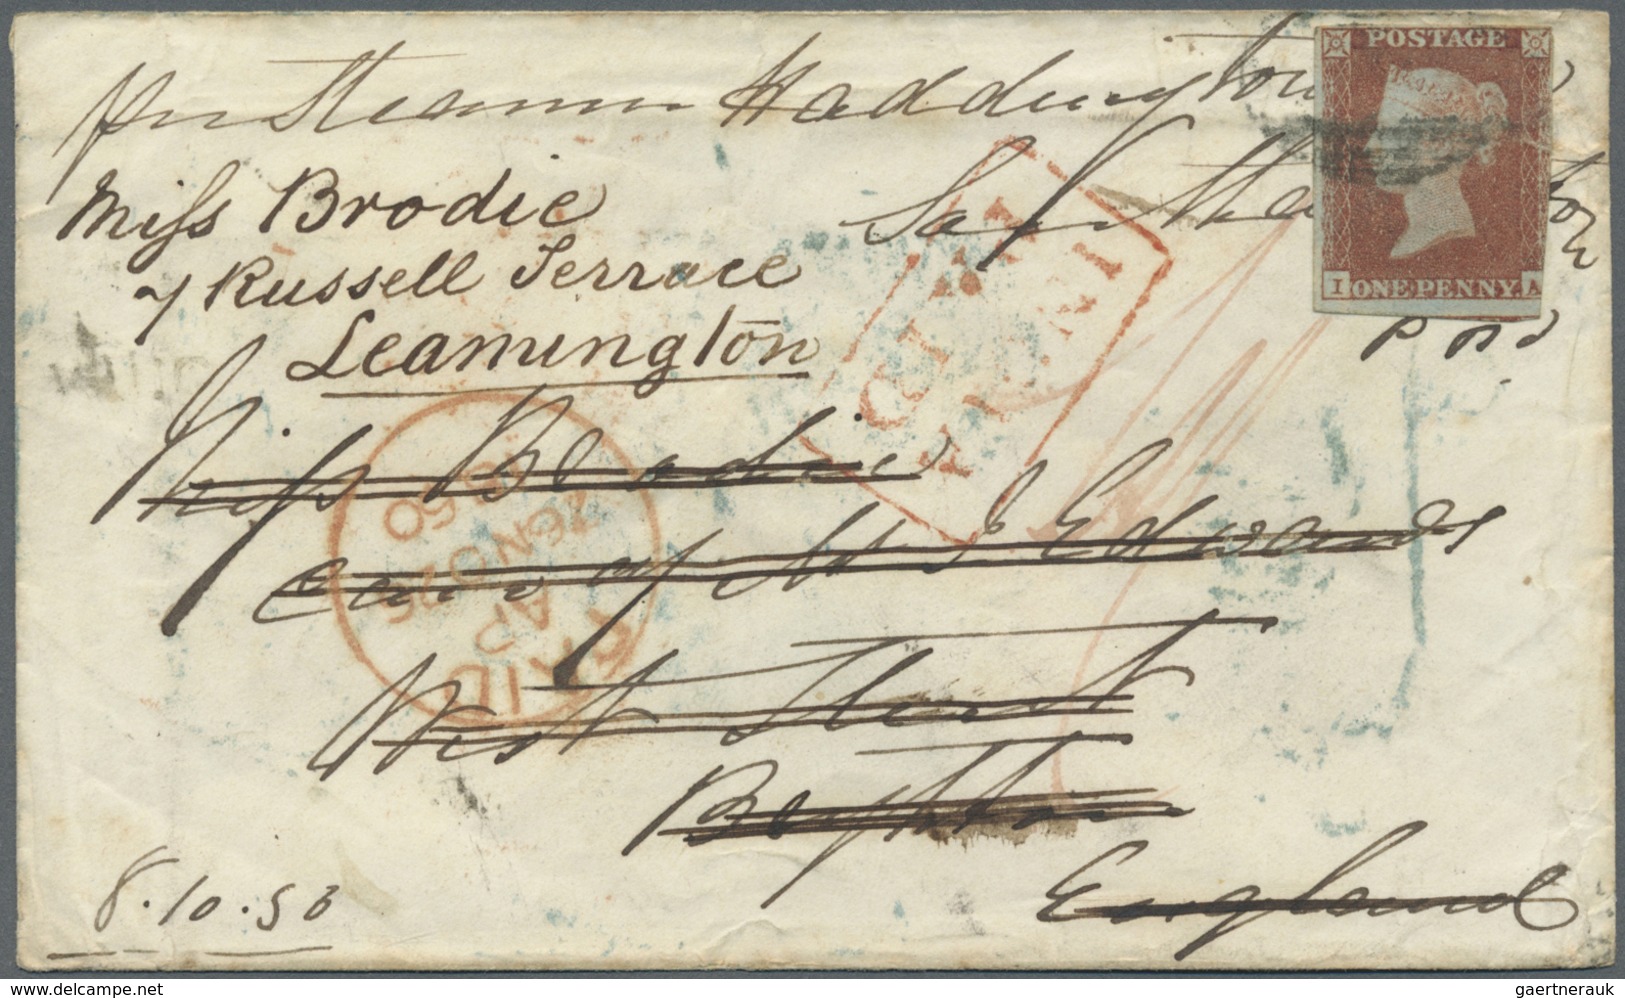 per Steamer Haddington
POSTAGE
Miss Brodie
7 Russell Terrace
Leamington
INDIA
PAID
I ONE PENNY. A
paid
Miss Brodie
care of
Edwards
PAID
AP
50
West Street
Brighton
8.10.50
England
www.delcampe.net
gaertnerauk